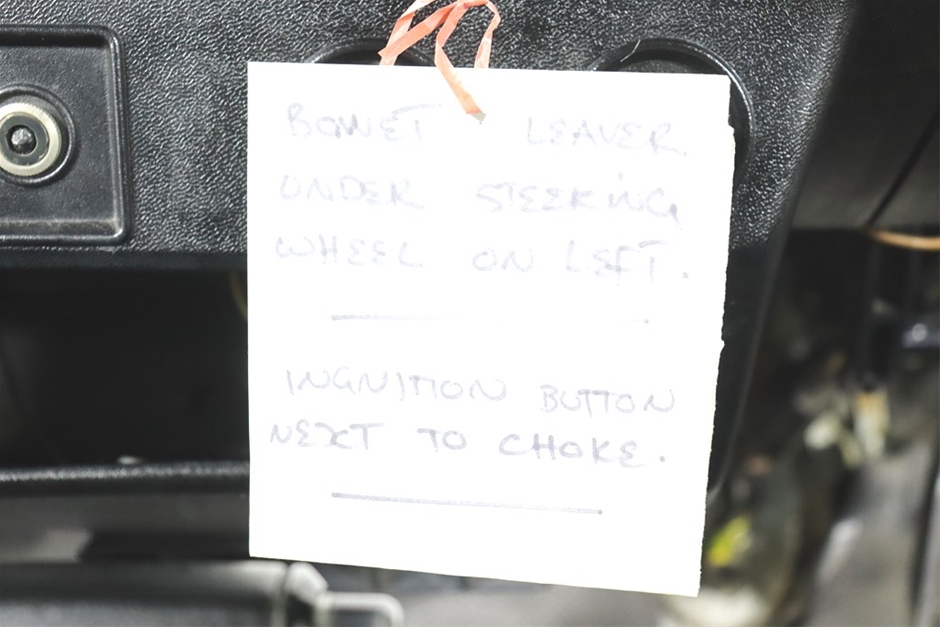 BONNET LEAVER
UNDER STEERING
WHEEL ON LEFT.
INGNITION BUTTON
NEXT TO CHOKE.